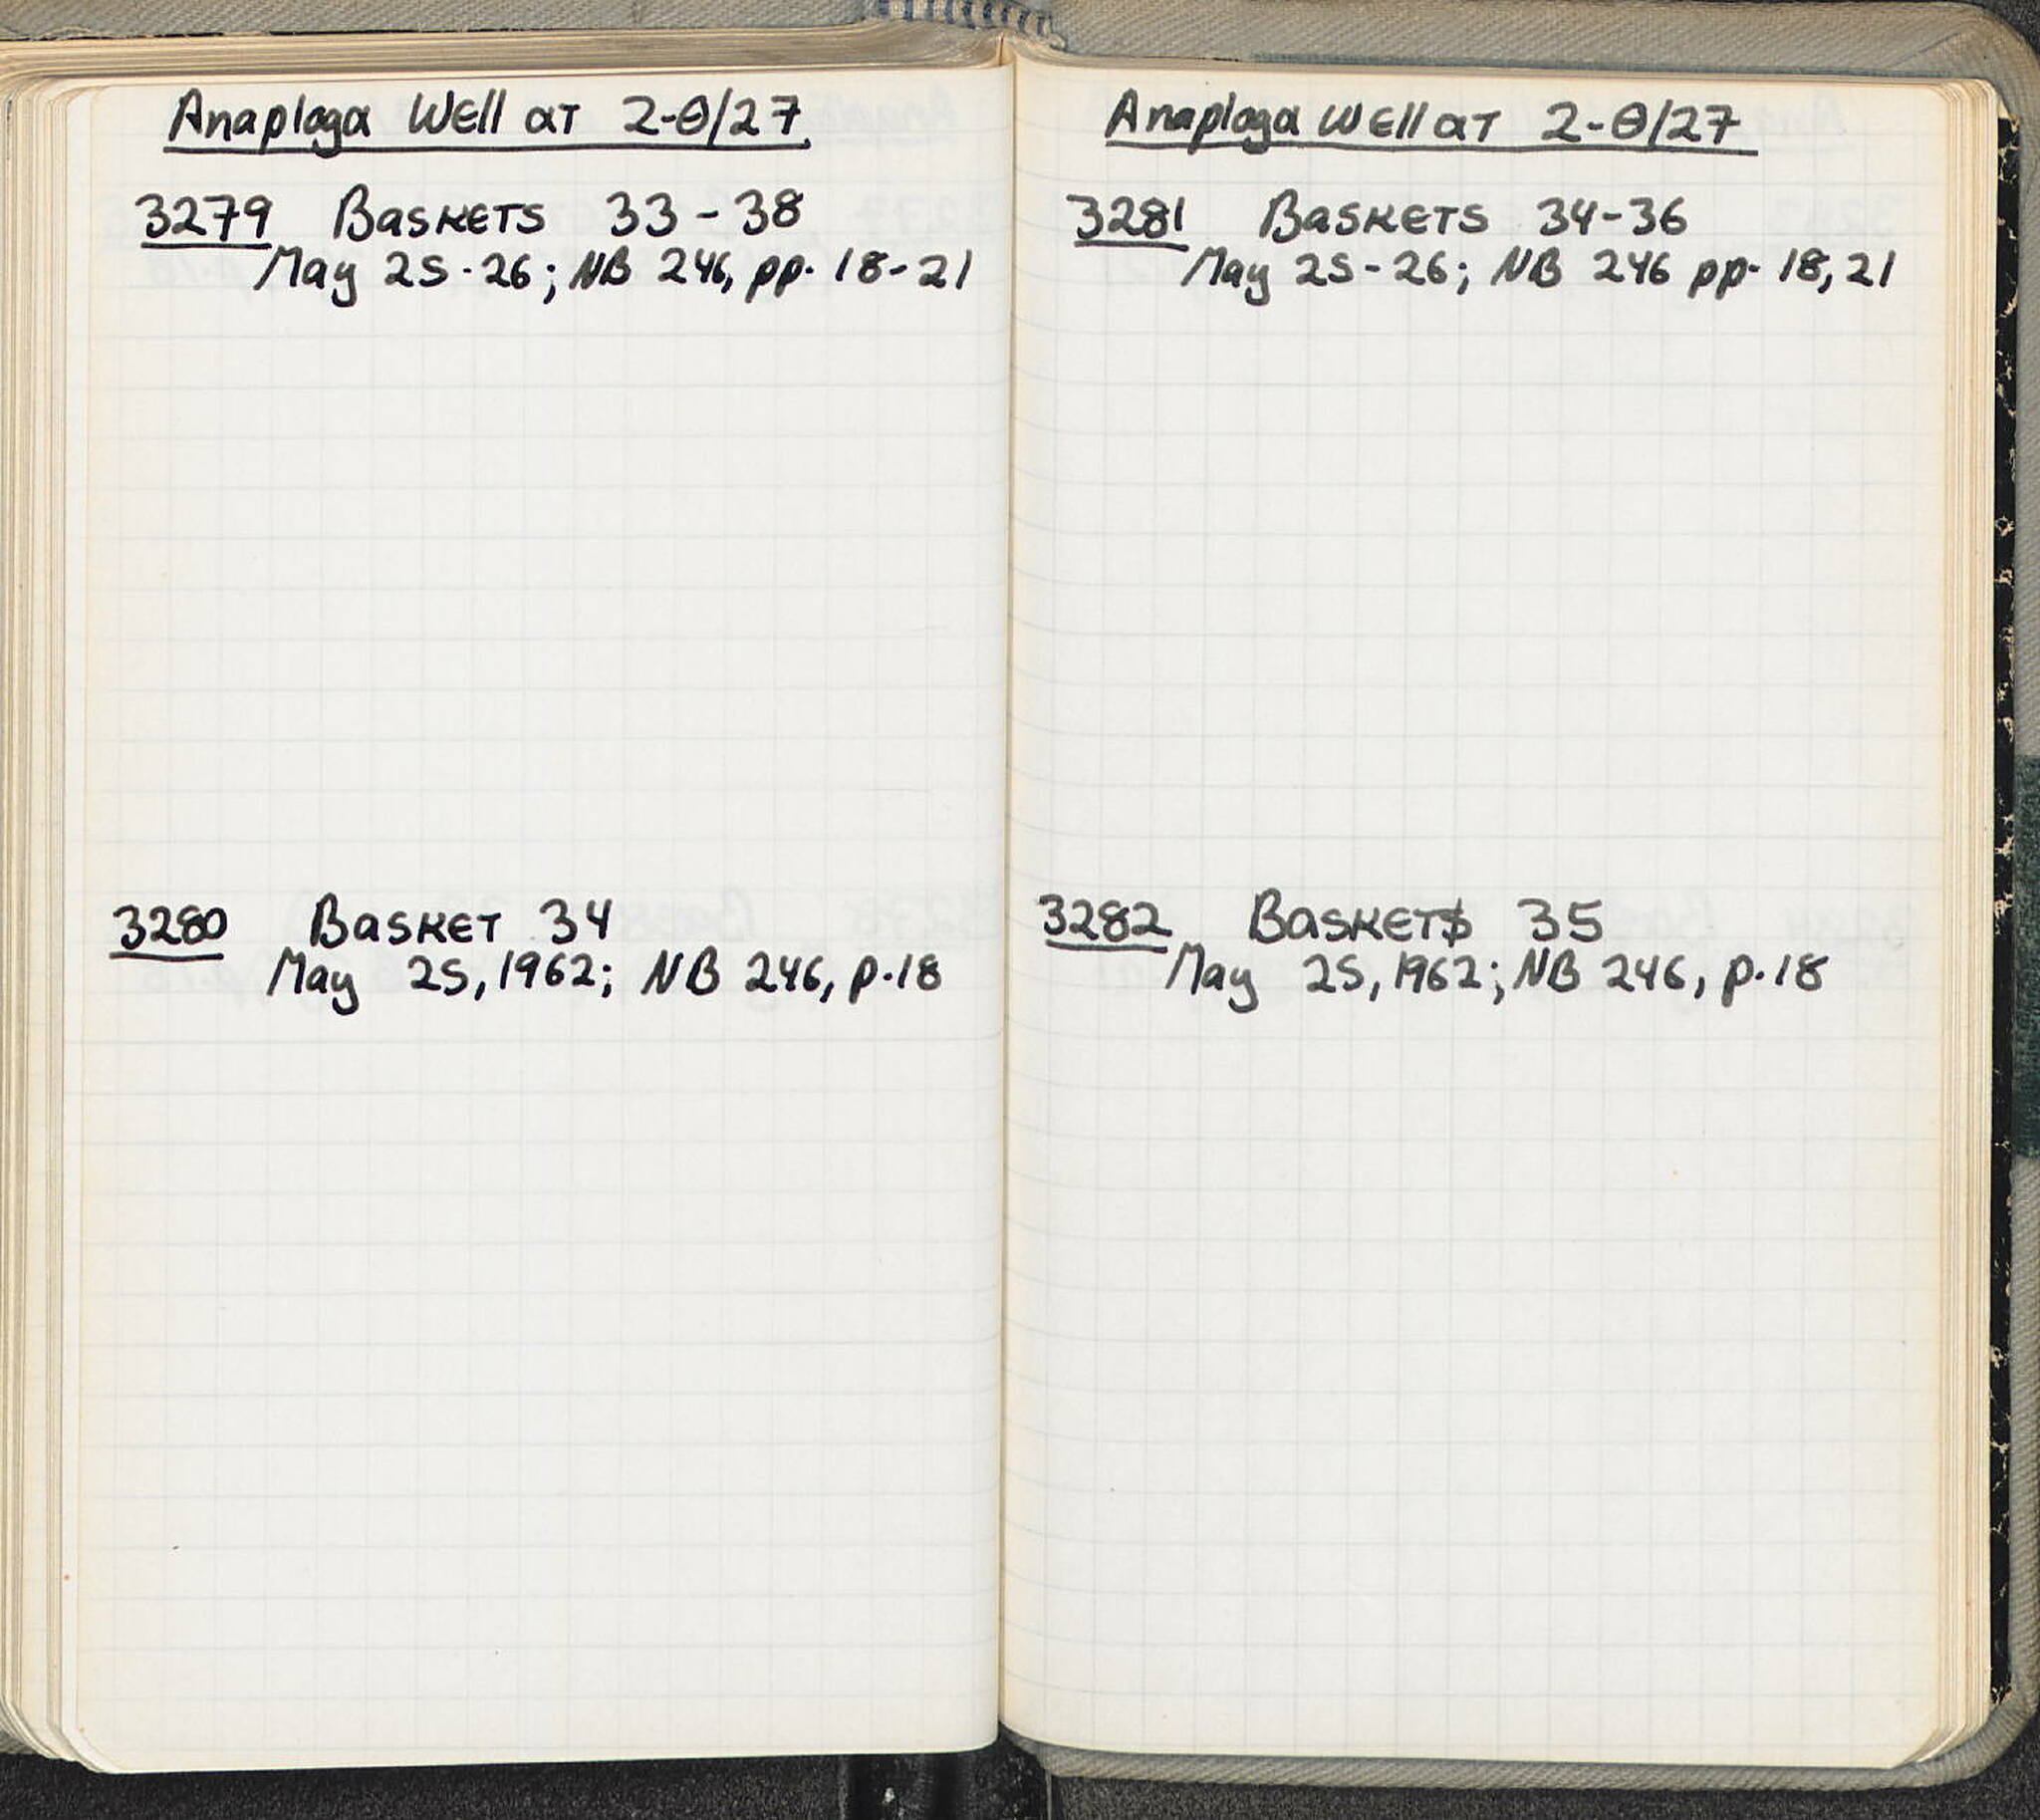 Anaploga Well at 2-Θ/27
3279 Baskets 33-38
May 25-26; NB 246, pp. 18-21
3280 Basket 34
May 25, 1962; NB 246, p.18
Anaploga Well at 2-Θ/27
3281 Baskets 34-36
May 25-26; NB 246 pp. 18, 21
3282 Basket 35
May 25, 1962; NB 246, p.18